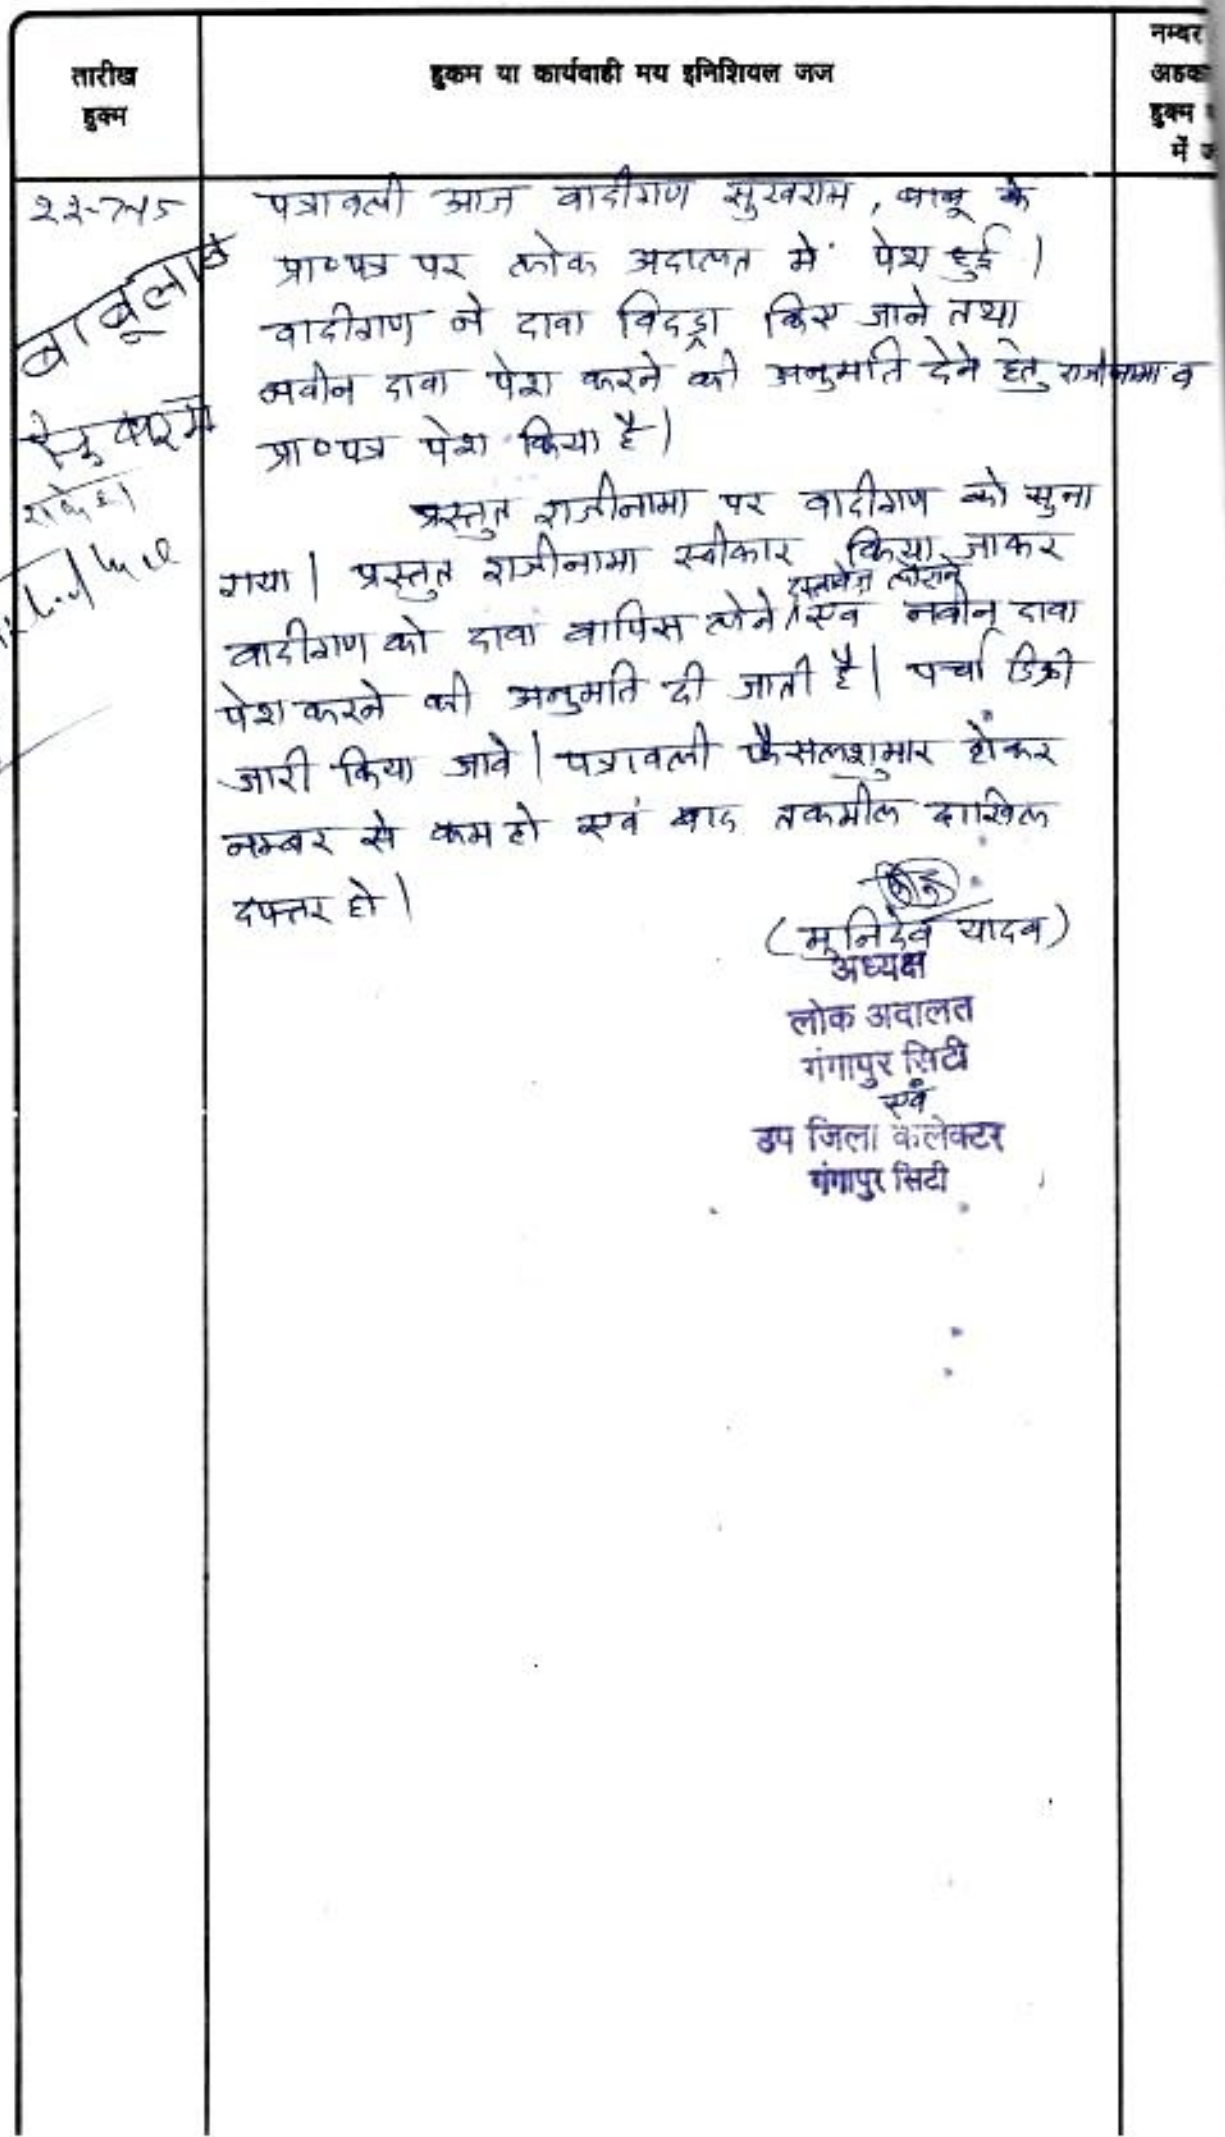 तारीख
हुक्म
हुकम या कार्यवाही मय इनिशियल जज
नम्बर
अहका
हुक्म
में ज
बाबूलाल
पत्रावली आज वादीगण सुखराम, बाबू के
प्रा०पत्र पर लोक अदालत में पेश हुई।
वादीगण ने दावा विदड्रा किए जाने तथा
नवीन दावा पेश करने की अनुमति देने हेतु राजीनामा व
प्रा०पत्र पेश किया है।
प्रस्तुत राजीनामा पर वादीगण को सुना
गया। प्रस्तुत राजीनामा स्वीकार किया जाकर
दस्तावेज लौटाने
वादीगण को दावा वापिस लेने एवं नवीन दावा
पेश करने की अनुमति दी जाती है। पर्चा डिक्री
जारी किया जावे। पत्रावली फैसलशुमार होकर
नम्बर से कम हो एवं बाद तकमील दाखिल
दफ्तर हो।
(मुनिदेव यादव)
अध्यक्ष
लोक अदालत
गंगापुर सिटी
एवं
उप जिला कलेक्टर
गंगापुर सिटी